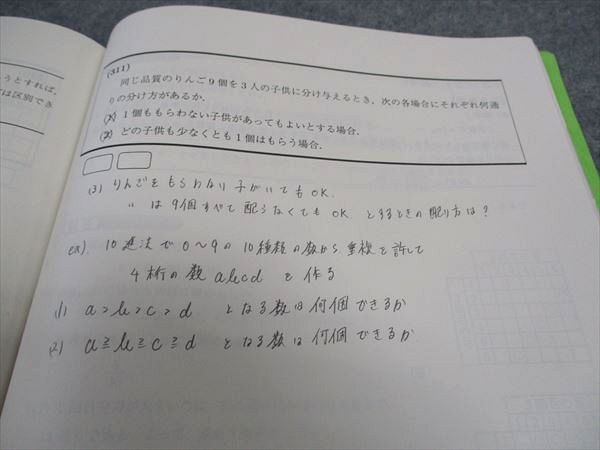 うとすれば,
は区別でき
(311)
同じ品質のりんご9個を3人の子供に分け与えるとき,次の各場合にそれぞれ何通
りの分け方があるか.
(1) 1個ももらわない子供があってもよいとする場合.
(2) どの子供も少なくとも1個はもらう場合.
(3) りんごをもらわない子がいてもOK.
〃 は9個すべて配らなくてもOK とするときの配り方は?
ex). 10進法で0~9の10種類の数から重複を許して
4桁の数 abcd を作る
(1) a>b>c>d となる数は何個できるか
(2) a≧b≧c≧d となる数は何個できるか